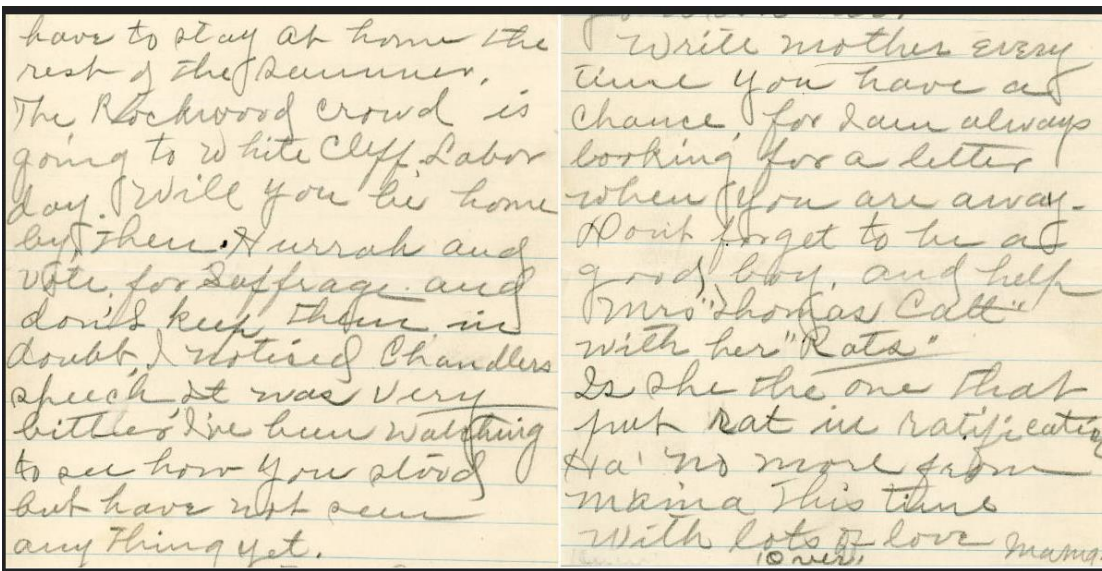 have to stay at home the
rest of the summer.
The Rockwood crowd is
going to White Cliff Labor
day. Will you be home
by then. Hurrah and
vote for Suffrage and
don't keep them in
doubt, I noticed Chandlers
speech, it was very
bitter. I've been watching
to see how you stood
but have not seen
anything yet.
Write mother every
time you have a
chance for I am always
looking for a letter
when you are away.
Don't forget to be a
good boy and help
Mrs "Thomas Catt"
with her "Rats"
Is she the one that
put rat in ratification
Ha! No more from
mama this time
With lots of love Mama
"Over"